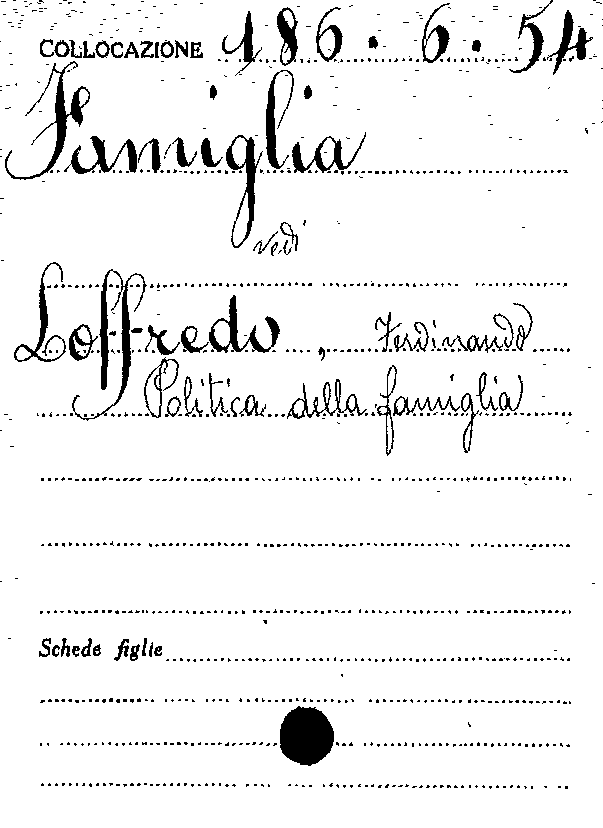 COLLOCAZIONE 186.6.54
Famiglia
vedi
Loffredo, Ferdinando
Politica della famiglia
Schede figlie